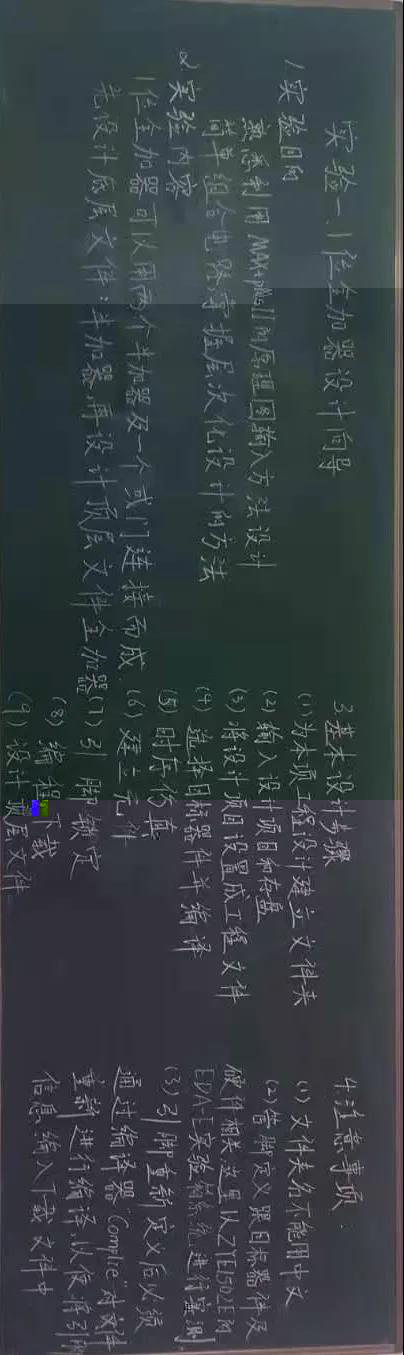 实验一、1位全加器设计向导
1 实验目的
熟悉利用MAX+plusII的原理图输入方法设计
简单组合电路,掌握层次化设计的方法
2 实验内容
1位全加器可以用两个半加器及一个或门连接而成
先设计底层文件:半加器,再设计顶层文件全加器
3 基本设计步骤
(1) 为本项工程设计建立文件夹
(2) 输入设计项目和存盘
(3) 将设计项目设置成工程文件
(4) 选择目标器件并编译
(5) 时序仿真
(6) 建立元件
(7) 引脚锁定
(8) 编程下载
(9) 设计顶层文件
4 注意事项
(1) 文件夹名不能用中文
(2) 管脚定义跟目标器件及
硬件相关,这里以ZYE1502E的
EDA-E实验箱系统进行
(3) 引脚重新定义后必须
通过编译器"Complie"对文件
重新进行编译,以便将引脚
信息编入下载文件中